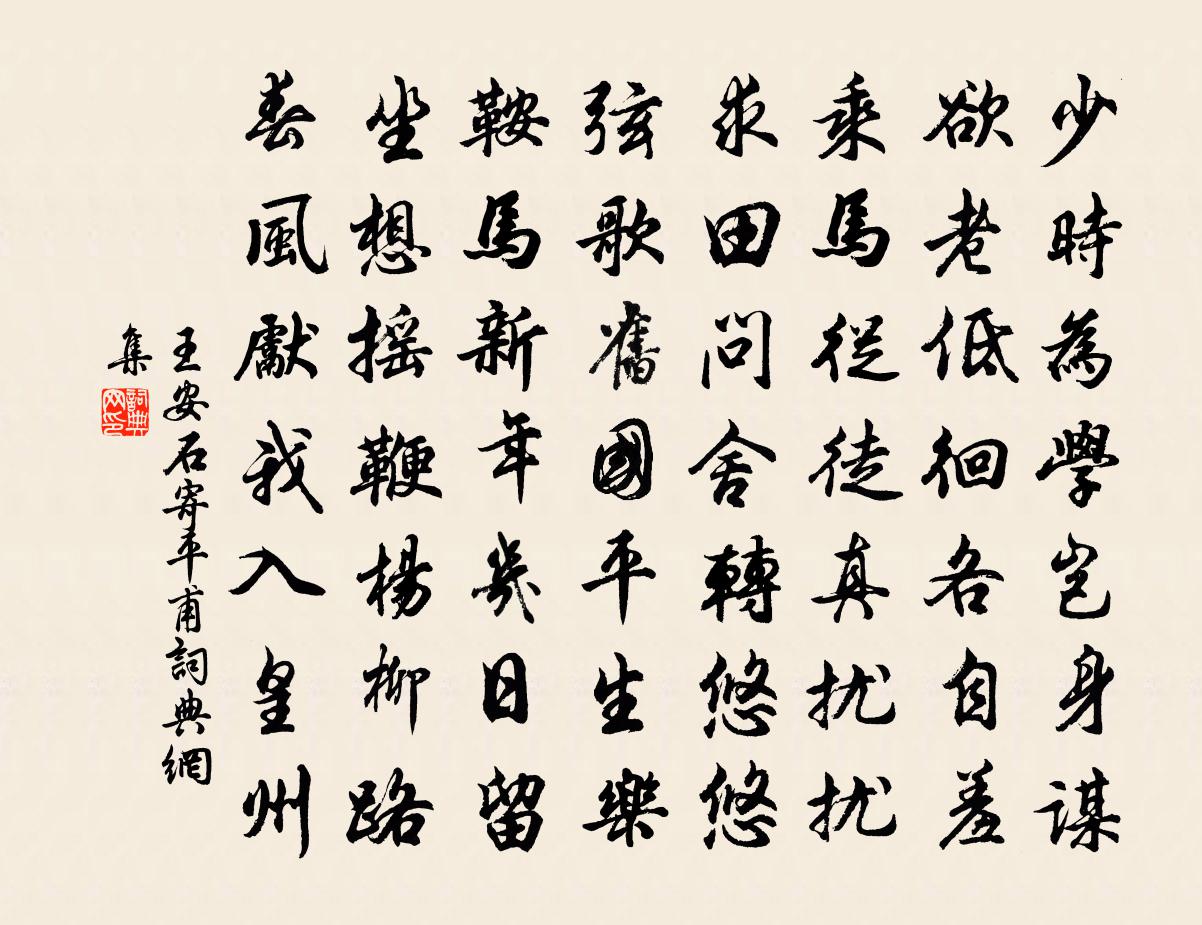 少時為學豈身謀
欲老低徊各自羞
乘馬從徒真擾擾
求田問舍轉悠悠
弦歌舊國平生樂
鞍馬新年幾日留
坐想摇鞭楊柳路
春風獻我入皇州
王安石寄平甫詞典網
集
詞典
网印